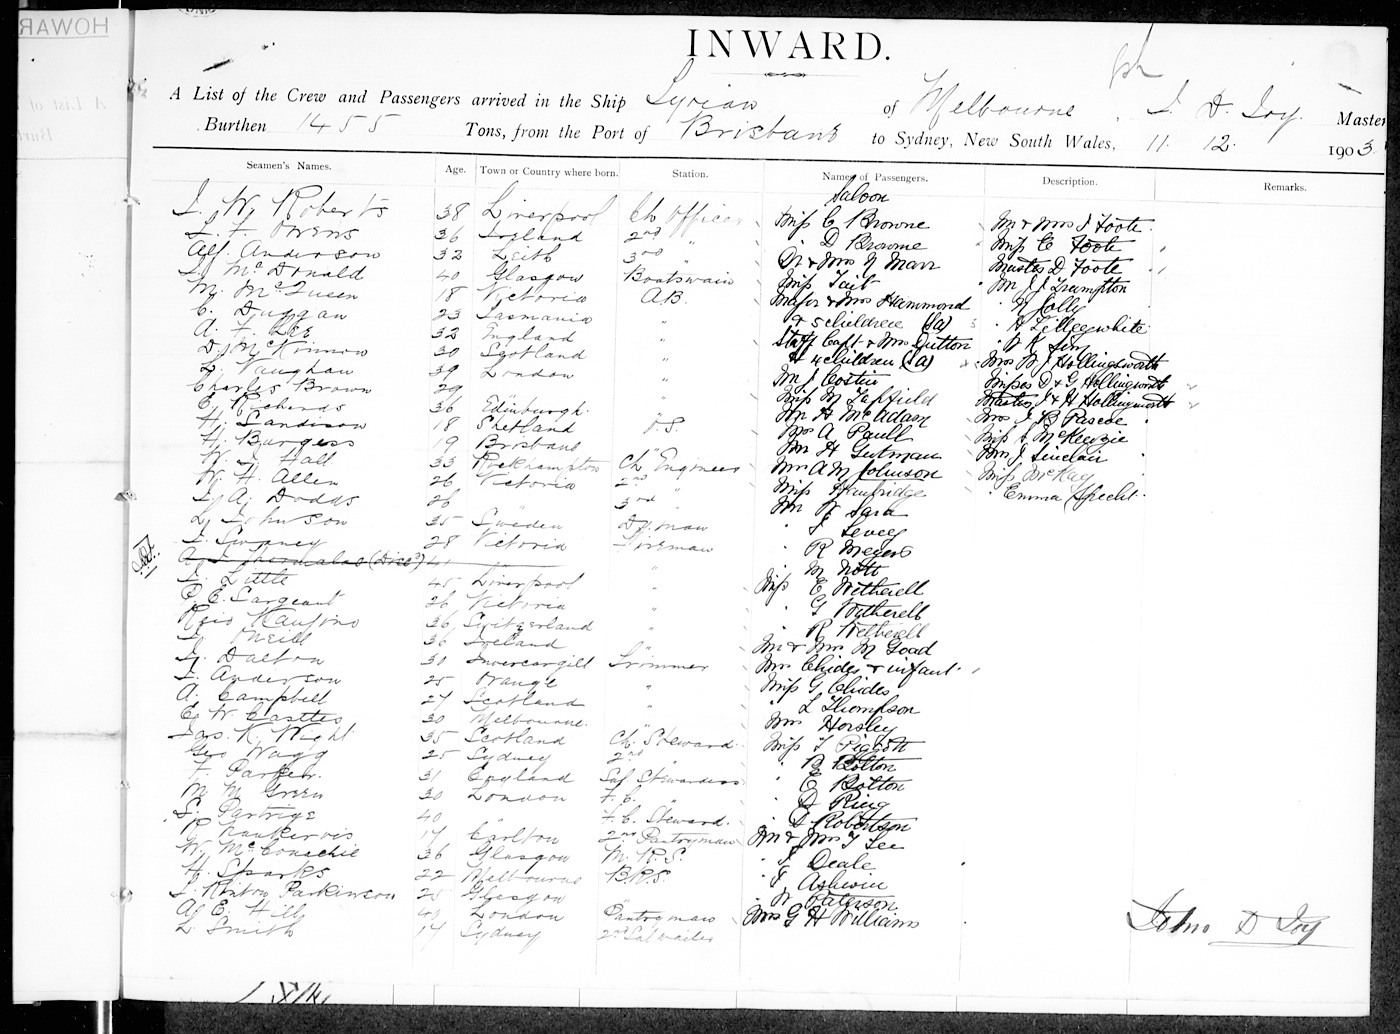 INWARD.
A List of the Crew and Passengers arrived in the Ship Syrian of Melbourne, J. D. Joy. Master
Burthen 1455 Tons, from the Port of Brisbane to Sydney, New South Wales, 11. 12. 1903
Seamen's Names. Age. Town or Country where born. Station. Names of Passengers. Description. Remarks.
Saloon
J. W. Roberts 38 Liverpool Ch Officer Miss C Browne Mr & Mrs J Foote
J. F. Owens 36 Ireland 2nd " D Browne Miss C Foote
Alf. Anderson 32 Leith 3rd " Mr & Mrs N Marr Master D Foote
J. McDonald 40 Glasgow Boatswain Miss Tait Mr J J Frampton
M. McQueen 18 Victoria A.B. Major & Mrs Hammond " N Jolly
C. Duggan 23 Tasmania " & 5 children (Sa) " A Lilleywhite
A. F. Lee 32 England " Staff Capt & Mrs Dutton " W K Sim
D. McKinnon 30 Scotland " & 4 children (Sa) Mrs W J Hollingsworth
J. Vaughan 39 London " Mr J Costin Misses D & G Hollingworth
Charles Brown 29 " Miss M Tapfield Masters J & H Hollingworth
E. Richards 36 Edinburgh. Mr H McAdam Mrs J B Pascoe
H. Sandison 18 Shetland O.S. Mrs A Paull Miss S McKenzie
H. Burgess 19 Brisbane " Mr H Gutman Mr J Sinclair
W. J. Hall 33 Rockhampton Ch Engineer Mr A M Johnson Miss McKay
W. H. Allen 26 Victoria 2nd " Miss Hambridge Emma Specht
J. A. Dodds 26 " 3rd " Mr W Sara
L. Johnson 35 Sweden Dy. man " J Levey
J. Sweeney 28 Victoria Fireman " R Meyers
(Disc) 41 " " M Nott
J. Little 45 Liverpool " Miss E Wetherell
P. E. Sargeant 26 Victoria " " G Wetherell
36 Switzerland " " R Wetherell
J. ONeill 36 Ireland " Mr & Mrs M Goad
J. Dalton 30 Invercargill Trimmer Mrs Clides & infant
J. Anderson 25 Orange " Miss G Clides
A. Campbell 27 Scotland " " L Thompson
E. W. Castles 30 Melbourne. " Mrs Horsley
Jas. K. Wight 35 Scotland Ch. Steward Miss T Pigott
Geo Wagg 25 Sydney 2nd " " B Bolton
F. Parker. 31 England Sal Stewardess " E Bolton
M. M. Green 30 London F. C. " " D Ring
S. Partrige 40 " F. C. Steward. " S Robertson
R. Nankervis 17 Carlton 2nd Pantryman Mr & Mrs T Lee
W. McConachie 36 Glasgow M. R. S. " J Deale
H. Sparks 22 Melbourne B.R.S. " T Ashwin
J. Kinton Parkinson 25 Glasgow " " W Paterson
Alf E. Hill 49 London Pantryman Mrs G H Williams
L. Smith 17 Sydney 2nd Sal waiter
John D Joy